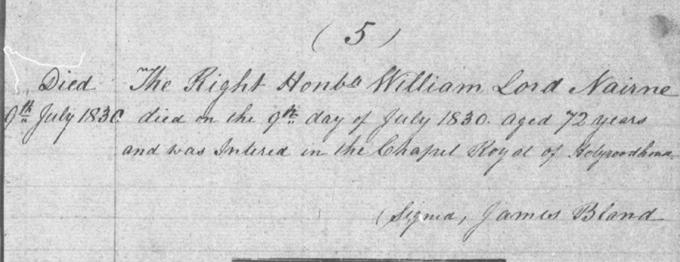 ( 5 )
Died The Right Honble William Lord Nairne
9th July 1830. died on the 9th day of July 1830. aged 72 years
and was Intered in the Chapel Royal of Holyroodhouse.
(Signed, James Bland